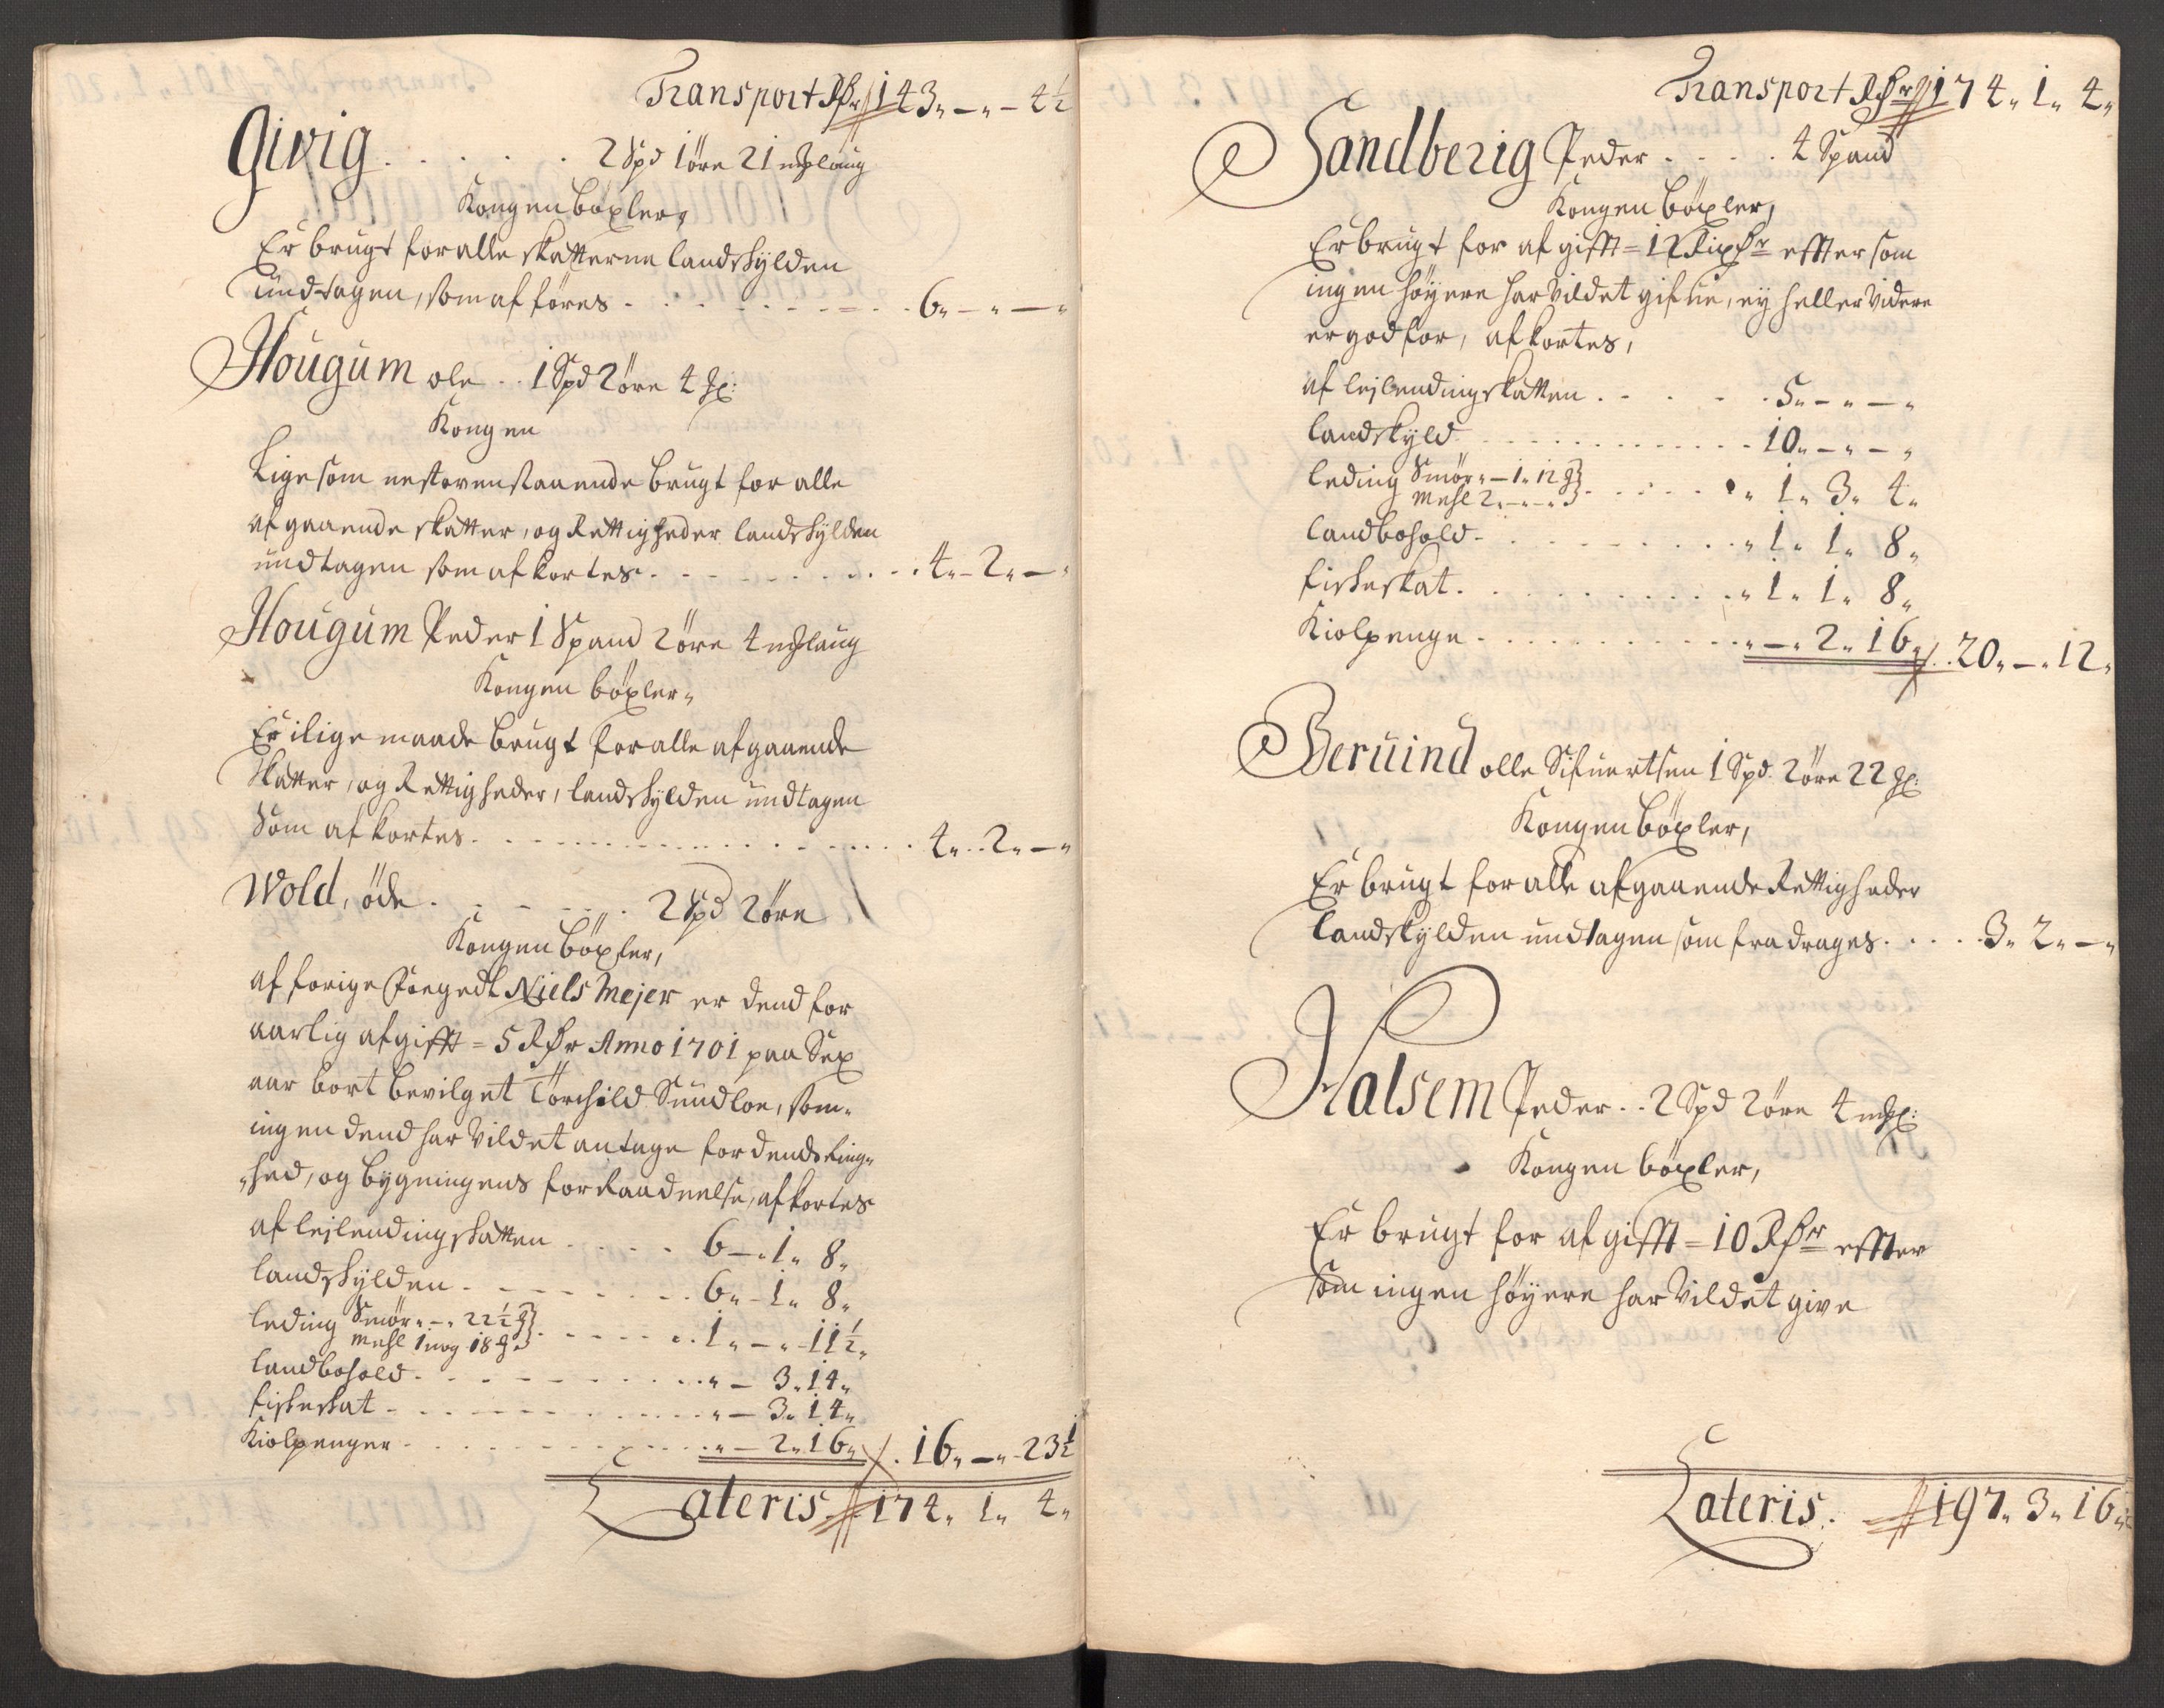 Transport Rdr 143„ – „ – 4½
Givig . . . . . 2 Spd 1 øre 21 mrklaug
Kongen böxler,
Er brugt for alle skatterne landskylden
undtagen, som afføres . . . . . 6„ – „ – „
Hougum ole . . 1 Spd 2 øre 4 Mk:
Kongen
Ligesom nestovenstaaende brugt for alle
afgaaende skatter, og Rettigheder landskylden
undtagen som afkortes . . . . . 4„ – 2„ – „
Hougum Peder 1 Spand 2 øre 4 mrklaug
Kongen böxler„
Er i lige maade brugt for alle afgaaende
Skatter, og Rettigheder, landskylden undtagen
Som afkortes . . . . . 4„ . . 2„ – „
Wold, öde . . . . . 2 Spd 2 øre
Kongen böxler,
af forige Foegedt Niels Mejer er dend for
aarlig afgifft = 5 Rdr Anno 1701 paa Sex
aar bort bevilget Torchild Sundloe, som„
ingen dend har vildet antage for dends Ring„
„hed, og bygningens forRaadnelse, afkortes
af lejlendingskatten . . . . 6 – „ 1„ 8„
landskylden . . . . . 6„ – 1„ 8„
leding Smør „ – „ 22½ {
Mehl 1 wog 18 . . . . . 1„ – „ 11½„
landbohold . . . . . „ – 3„ 14„
fiskeskat . . . . . „ – 3„ 14„
Kiolpenger . . . . . „ – 2„ 16„ . 16„ – „ 23½
Lateris 174„ 1„ 4„
Transport Rdr 174„ 1„ 4„
Sandberig Peder . . . . 4 Spand
Kongen böxler,
Er brugt for afgifft = 12 Rixdr effter som
ingen höyere har vildet gifue, ey heller videre
er god for, afkortes,
af lejlendingskatten . . . . . 5„ – „ – „
landskyld . . . . . 10„ – „ – „
leding Smør „ – 1„ 12
Mehl 2„ – „ – „ . . . . . „ 1„ 3„ 4„
landbohold . . . . . „ 1„ 1„ 8„
fiskeskat . . . . . „ 1„ 1„ 8„
Kiolpenge . . . . . „ – „ 2„ 16„ . 20„ – „ 12„
Beruind olle Sifuertsen 1 Spd. 2 øre 22 Mk:
Kongen böxler,
Er brugt for alle afgaaende Rettigheder
landskylden undtagen som fradrages . . . . 3„ 2„ – „
Halsem Peder . . 2 Spd 2 øre 4 mk:
Kongen böxler,
Er brugt for afgifft = 10 Rdr effter
som ingen höyere har vildet give
Lateris . 197„ 3„ 16„